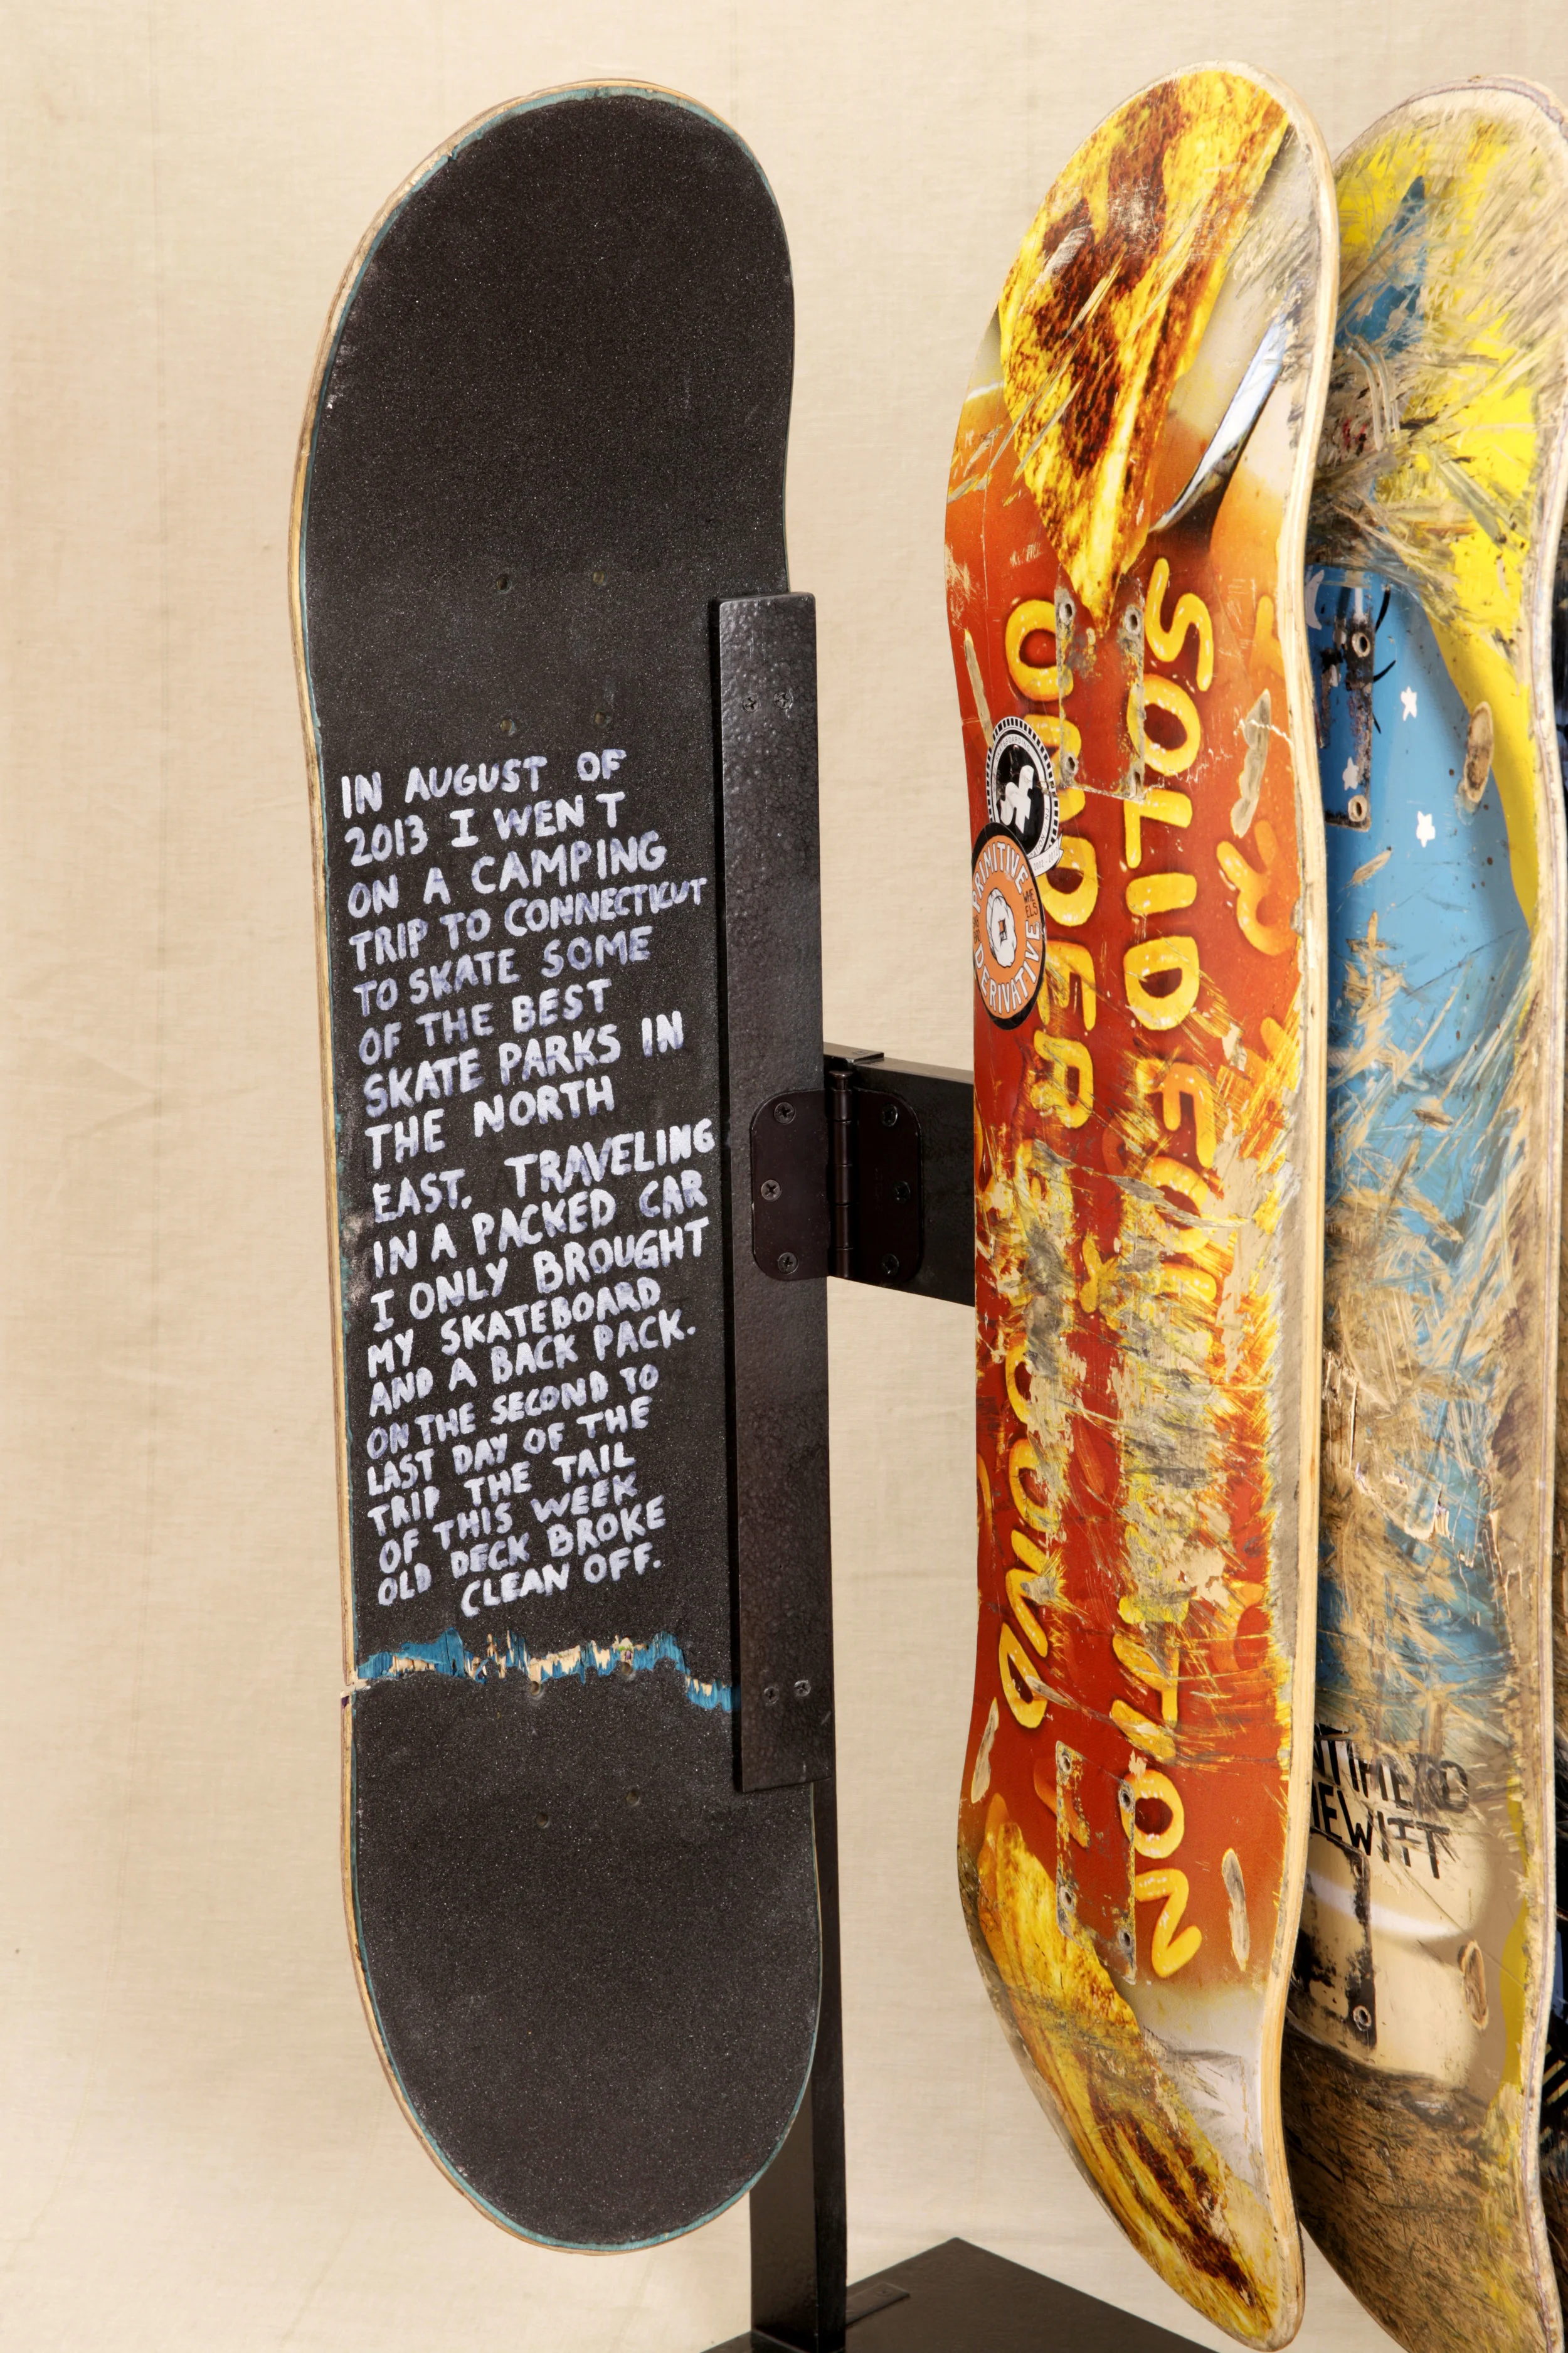 IN AUGUST OF
2013 I WENT
ON A CAMPING
TRIP TO CONNECTICUT
TO SKATE SOME
OF THE BEST
SKATE PARKS IN
THE NORTH
EAST. TRAVELING
IN A PACKED CAR
I ONLY BROUGHT
MY SKATEBOARD
AND A BACK PACK.
ON THE SECOND TO
LAST DAY OF THE
TRIP THE TAIL
OF THIS WEEK
OLD DECK BROKE
CLEAN OFF.
SOLID
UNDER
PRIMITIVE
WHEELS
DERIVATIVE